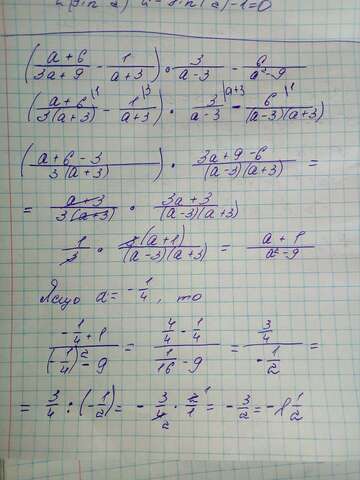 ( (a+6)/(3a+9) - 1/(a+3) ) · 3/(a-3) - 6/(a²-9)
( (a+6)/(3(a+3)) |1 - 1/(a+3) |3 ) · 3/(a-3) |a+3 - 6/((a-3)(a+3)) |1
( (a+6-3)/(3(a+3)) ) · (3a+9-6)/((a-3)(a+3)) =
= (a+3)/(3(a+3)) · (3a+3)/((a-3)(a+3))
1/3 · 3(a+1)/((a-3)(a+3)) = (a+1)/(a²-9)
Якщо a = -1/4, то
(-1/4+1)/((-1/4)²-9) = (4/4-1/4)/(1/16-9) = (3/4)/(-1/2) =
= 3/4 : (-1/2) = -3/4 2 · 2/1 1 = -3/2 = -1 1/2